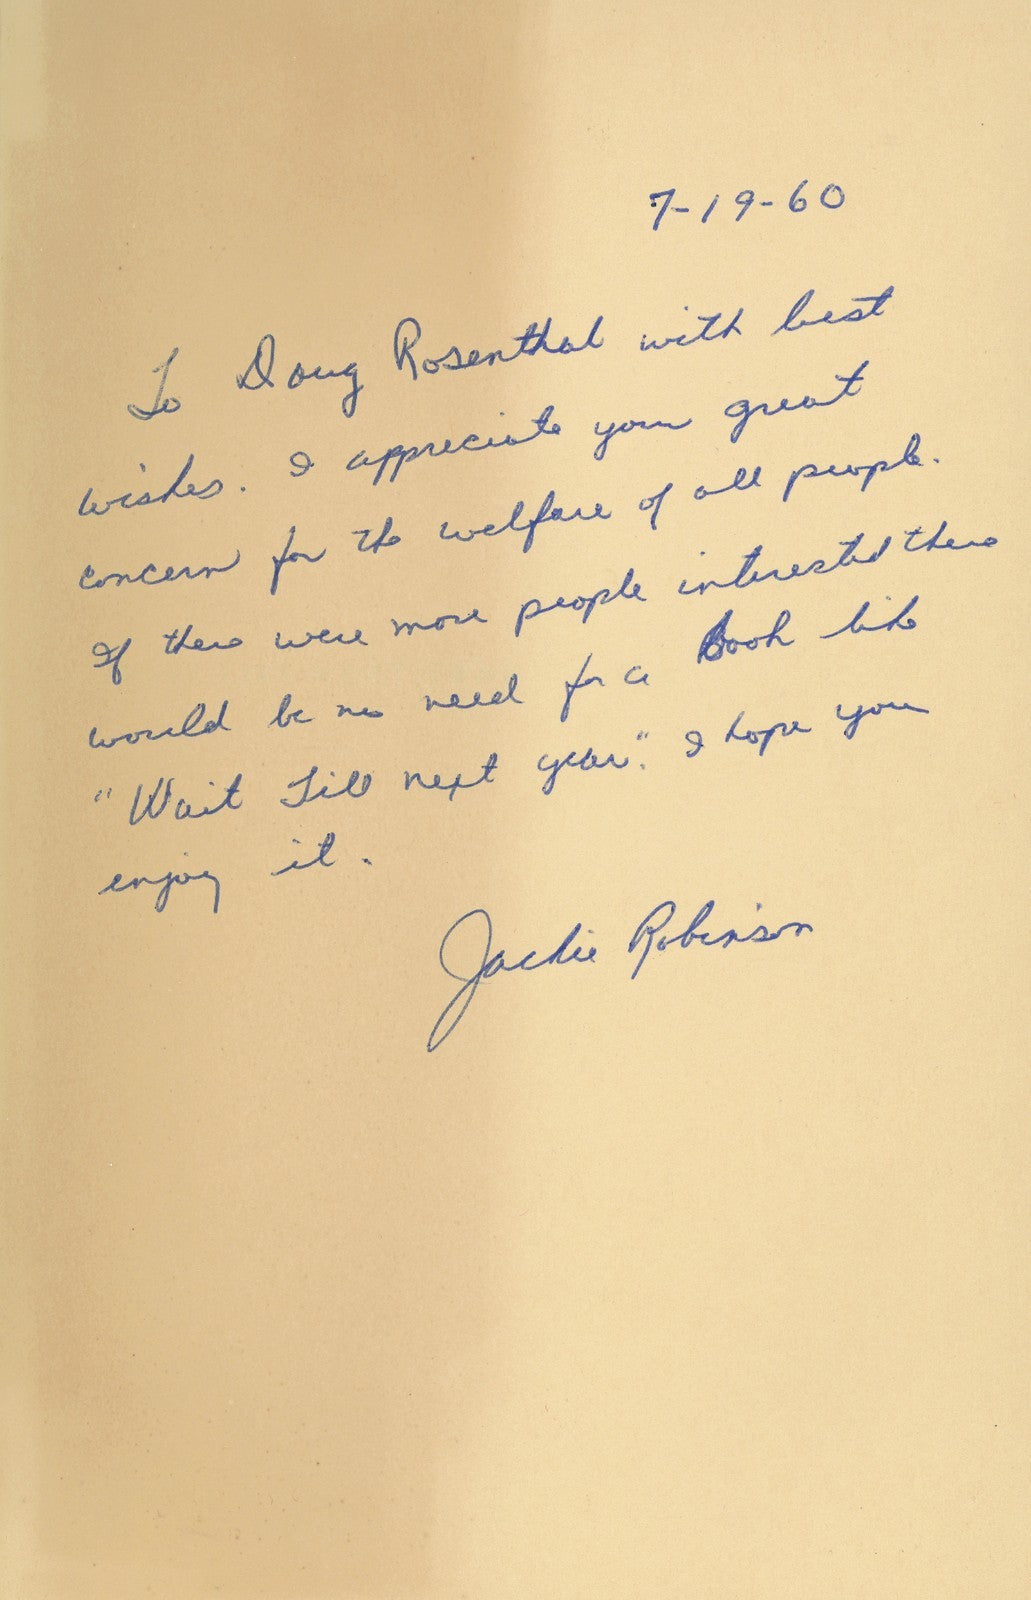 7-19-60
To Doug Rosenthal with best
wishes. I appreciate your great
concern for the welfare of all people.
If there were more people interested there
would be no need for a Book like
"Wait Till next year." I hope you
enjoy it.
Jackie Robinson